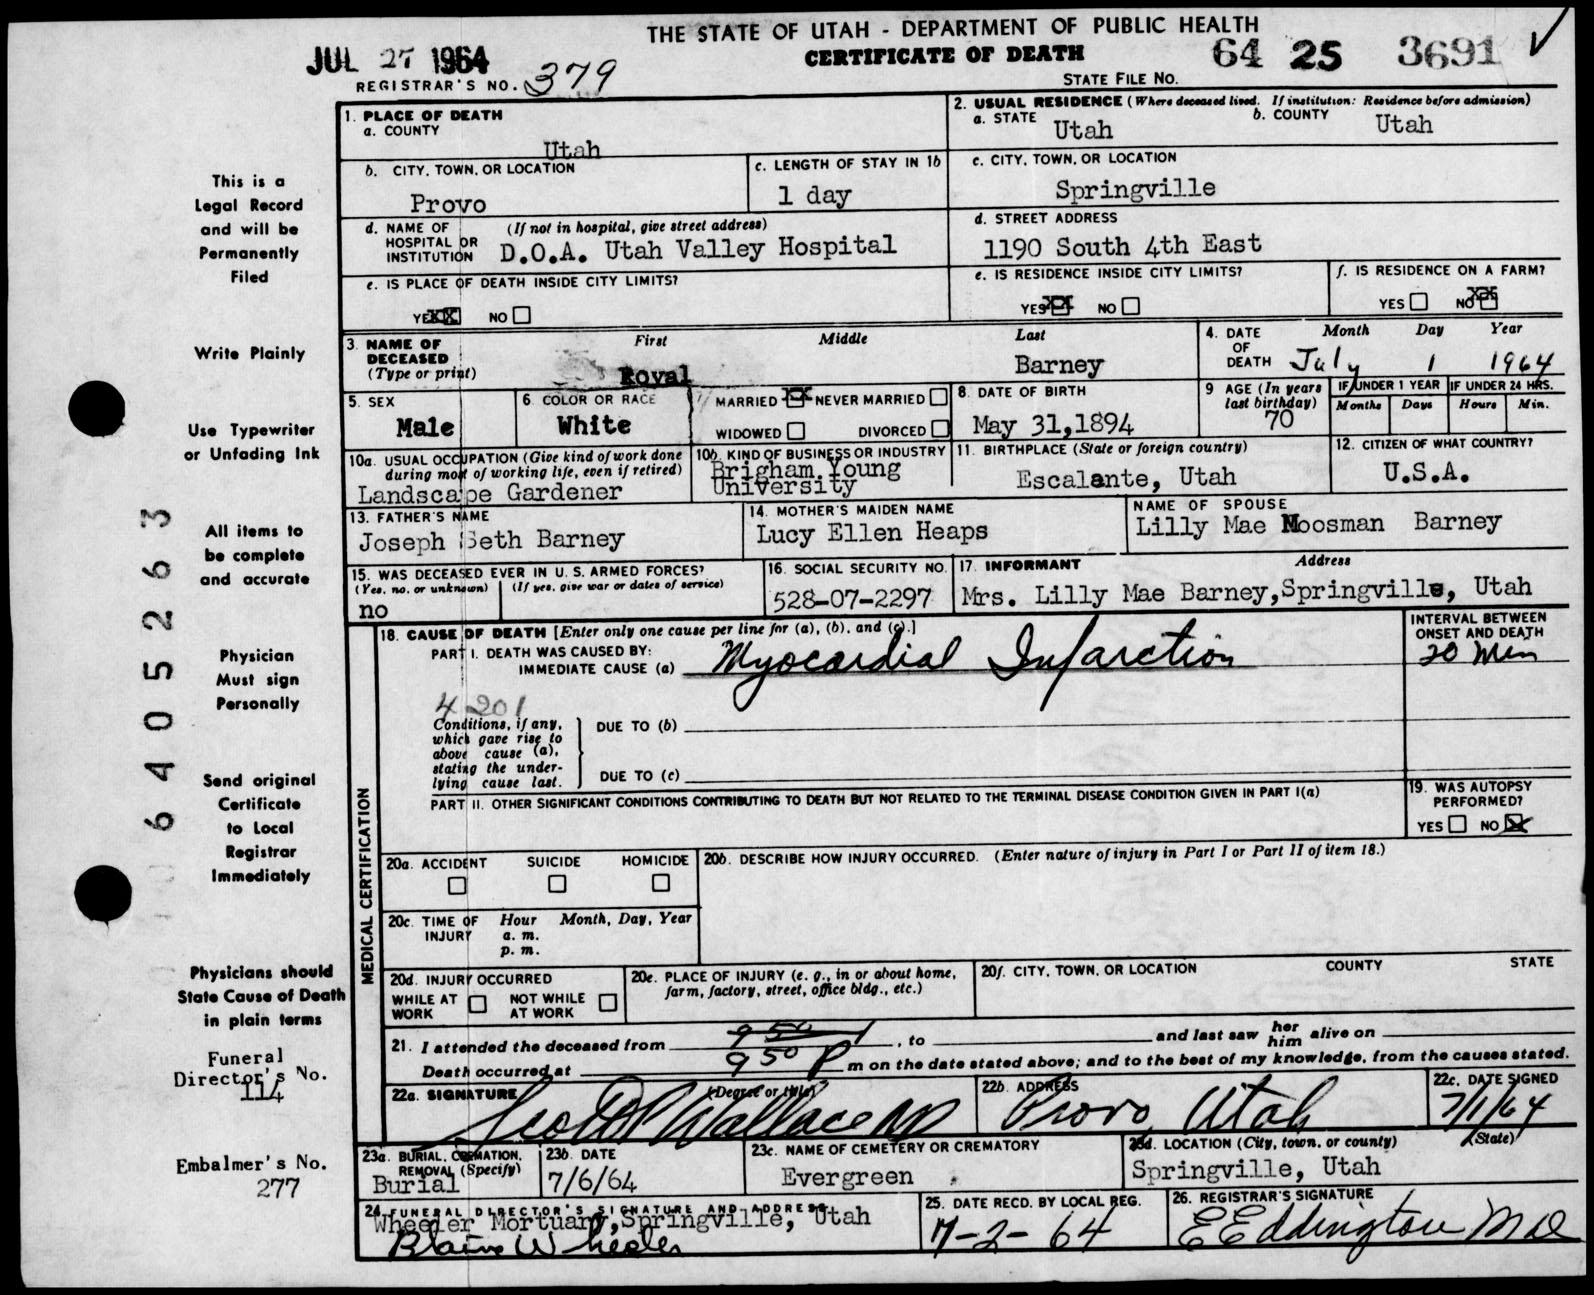 THE STATE OF UTAH - DEPARTMENT OF PUBLIC HEALTH
CERTIFICATE OF DEATH
JUL 27 1964
REGISTRAR'S NO. 379
64 25 3691
STATE FILE NO.
This is a
Legal Record
and will be
Permanently
Filed
Write Plainly
Use Typewriter
or Unfading Ink
All items to
be complete
and accurate
Physician
Must sign
Personally
Send original
Certificate
to Local
Registrar
Immediately
Physicians should
State Cause of Death
in plain terms
Funeral
Director's No.
114
Embalmer's No.
277
6405263
1. PLACE OF DEATH
a. COUNTY
Utah
b. CITY, TOWN, OR LOCATION
Provo
c. LENGTH OF STAY IN 1b
1 day
d. NAME OF HOSPITAL OR INSTITUTION (If not in hospital, give street address)
D.O.A. Utah Valley Hospital
e. IS PLACE OF DEATH INSIDE CITY LIMITS?
YES XX NO
2. USUAL RESIDENCE (Where deceased lived. If institution: Residence before admission)
a. STATE Utah
b. COUNTY Utah
c. CITY, TOWN, OR LOCATION
Springville
d. STREET ADDRESS
1190 South 4th East
e. IS RESIDENCE INSIDE CITY LIMITS?
YES XX NO
f. IS RESIDENCE ON A FARM?
YES NO XX
3. NAME OF DECEASED (Type or print)
First Middle Last
Royal Barney
4. DATE OF DEATH
Month Day Year
July 1 1964
5. SEX
Male
6. COLOR OR RACE
White
7 MARRIED XX NEVER MARRIED
WIDOWED DIVORCED
8. DATE OF BIRTH
May 31,1894
9 AGE (In years last birthday)
70
IF UNDER 1 YEAR
Months Days
IF UNDER 24 HRS.
Hours Min.
10a. USUAL OCCUPATION (Give kind of work done during most of working life, even if retired)
Landscape Gardener
10b. KIND OF BUSINESS OR INDUSTRY
Brigham Young
University
11. BIRTHPLACE (State or foreign country)
Escalante, Utah
12. CITIZEN OF WHAT COUNTRY?
U.S.A.
13. FATHER'S NAME
Joseph Seth Barney
14. MOTHER'S MAIDEN NAME
Lucy Ellen Heaps
NAME OF SPOUSE
Lilly Mae Moosman Barney
15. WAS DECEASED EVER IN U.S. ARMED FORCES?
(Yes, no, or unknown) (If yes, give war or dates of service)
no
16. SOCIAL SECURITY NO.
528-07-2297
17. INFORMANT Address
Mrs. Lilly Mae Barney,Springville, Utah
MEDICAL CERTIFICATION
18. CAUSE OF DEATH [Enter only one cause per line for (a), (b), and (c).]
PART I. DEATH WAS CAUSED BY:
IMMEDIATE CAUSE (a) Myocardial Infarction
INTERVAL BETWEEN ONSET AND DEATH
20 Min
4201
Conditions, if any, which gave rise to above cause (a), stating the underlying cause last.
DUE TO (b)
DUE TO (c)
PART II. OTHER SIGNIFICANT CONDITIONS CONTRIBUTING TO DEATH BUT NOT RELATED TO THE TERMINAL DISEASE CONDITION GIVEN IN PART I(a)
19. WAS AUTOPSY PERFORMED?
YES NO X
20a. ACCIDENT SUICIDE HOMICIDE
20b. DESCRIBE HOW INJURY OCCURRED. (Enter nature of injury in Part I or Part II of item 18.)
20c. TIME OF INJURY Hour Month, Day, Year
a. m.
p. m.
20d. INJURY OCCURRED
WHILE AT WORK NOT WHILE AT WORK
20e. PLACE OF INJURY (e. g., in or about home, farm, factory, street, office bldg., etc.)
20f. CITY, TOWN, OR LOCATION COUNTY STATE
21. I attended the deceased from 9 50, to and last saw her him alive on
Death occurred at 9 50 P m on the date stated above; and to the best of my knowledge, from the causes stated.
22a. SIGNATURE (Degree or title)
Scott Wallace MD
22b. ADDRESS
Provo, Utah
22c. DATE SIGNED
7/1/64
23a. BURIAL, CREMATION, REMOVAL (Specify)
Burial
23b. DATE
7/6/64
23c. NAME OF CEMETERY OR CREMATORY
Evergreen
23d. LOCATION (City, town, or county) (State)
Springville, Utah
24. FUNERAL DIRECTOR'S SIGNATURE AND ADDRESS
Wheeler Mortuary,Springville, Utah
Blaine W Wheeler
25. DATE RECD. BY LOCAL REG.
7-2-64
26. REGISTRAR'S SIGNATURE
E E Eddington MD